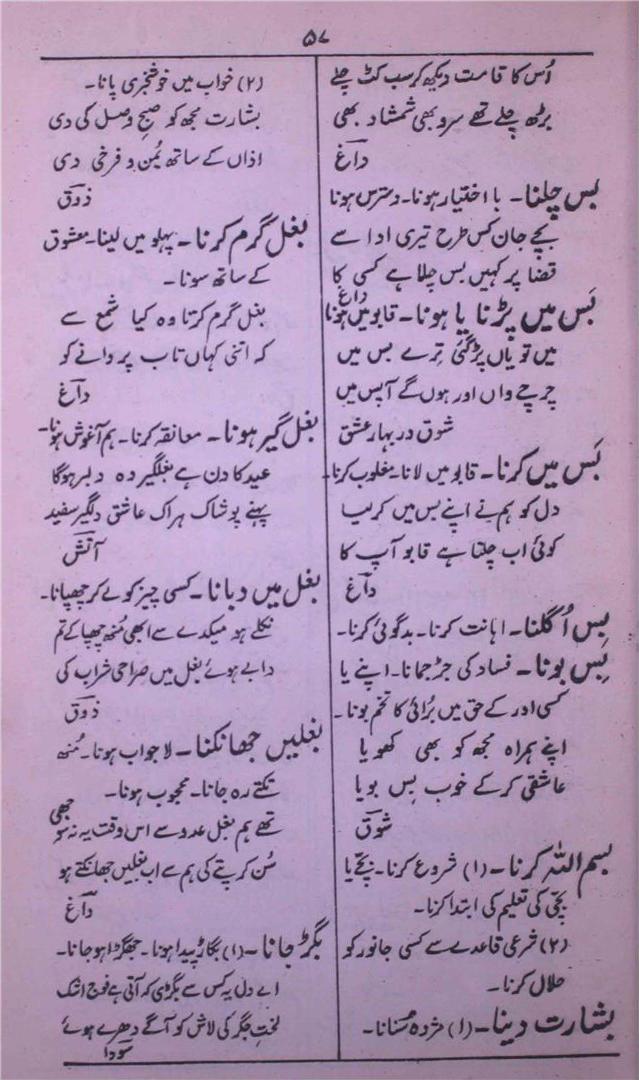 ۵۷
اُس کا قامت دیکھ کر سب کٹ چلے
بڑھ چلے تھے سرو بھی شمشاد بھی
داغ
بس چلنا۔ با اختیار ہونا۔ دسترس ہونا
بچے جان کس طرح تیری ادا سے
قضا پر کہیں بس چلا ہے کسی کا
داغ
بَس میں پڑنا یا ہونا۔ قابو میں ہونا
میں تو یاں پڑ گئی تِرے بس میں
چرچے واں اور ہوں گے آپس میں
شوق در بہارِ عشق
بَس میں کرنا۔ قابو میں لانا۔ مغلوب کرنا۔
دل کو ہم نے اپنے بس میں کر لیا
کوئی اب چلتا ہے قابو آپ کا
داغ
بِس اُگلنا۔ اہانت کرنا۔ بدگوئی کرنا۔
بِس بونا۔ فساد کی جڑ جمانا۔ اپنے یا
کسی اور کے حق میں بُرائی کا تخم بونا۔
اپنے ہمراہ مجھ کو بھی کھویا
عاشقی کر کے خوب بِس بویا
شوق
بسم اللہ کرنا۔ (۱) شروع کرنا۔ بچّے یا
بچّی کی تعلیم کی ابتدا کرنا۔
(۲) شرعی قاعدے سے کسی جانور کو
حلال کرنا۔
بشارت دینا۔ (۱) مژدہ سُنانا۔
(۲) خواب میں خوشخبری پانا۔
بشارت مجھ کو صبحِ وصل کی دی
اذاں کے ساتھ یُمن و فرخی دی
ذوق
بغل گرم کرنا۔ پہلو میں لینا۔ معشوق
کے ساتھ سونا۔
بغل گرم کرتا وہ کیا شمع سے
کہ اتنی کہاں تاب پروانے کو
داغ
بغل گیر ہونا۔ معانقہ کرنا۔ ہم آغوش ہونا۔
عید کا دن ہے بغلگیر وہ دلبر ہوگا
پہنے پوشاک ہر اک عاشق دلگیر سفید
آتش
بغل میں دبانا۔ کسی چیز کو لے کر چھپانا۔
نکلے ہو میکدے سے ابھی مُنھ چھپا کے تم
دابے ہوئے بغل میں صراحی شراب کی
ذوق
بغلیں جھانکنا۔ لاجواب ہونا۔ مُنھ
تکتے رہ جانا۔ محجوب ہونا۔
تھے ہم بغل عدو سے اس وقت یہ نہ سوجھی
سُن کر پتے کی ہم سے اب بغلیں جھانکتے ہو
داغ
بگڑ جانا۔ (۱) بگاڑ پیدا ہونا۔ جھگڑا ہو جانا۔
اے دل یہ کس سے بگڑی کہ آتی ہے فوجِ اشک
لختِ جگر کی لاش کو آگے دھرے ہوئے
سودا